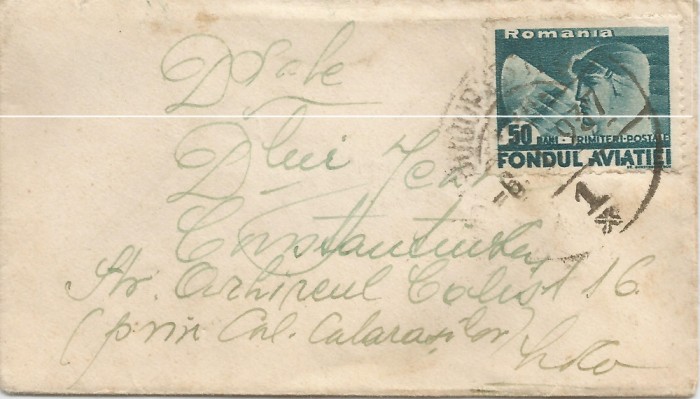 Romania
50 BANI · TRIMITERI-POSTALE
FONDUL AVIATIEI
1
D Sale
Dlui
Constantinescu
Str. Arhireul Calist 16
(prin Cal. Calarașilor)
Loco